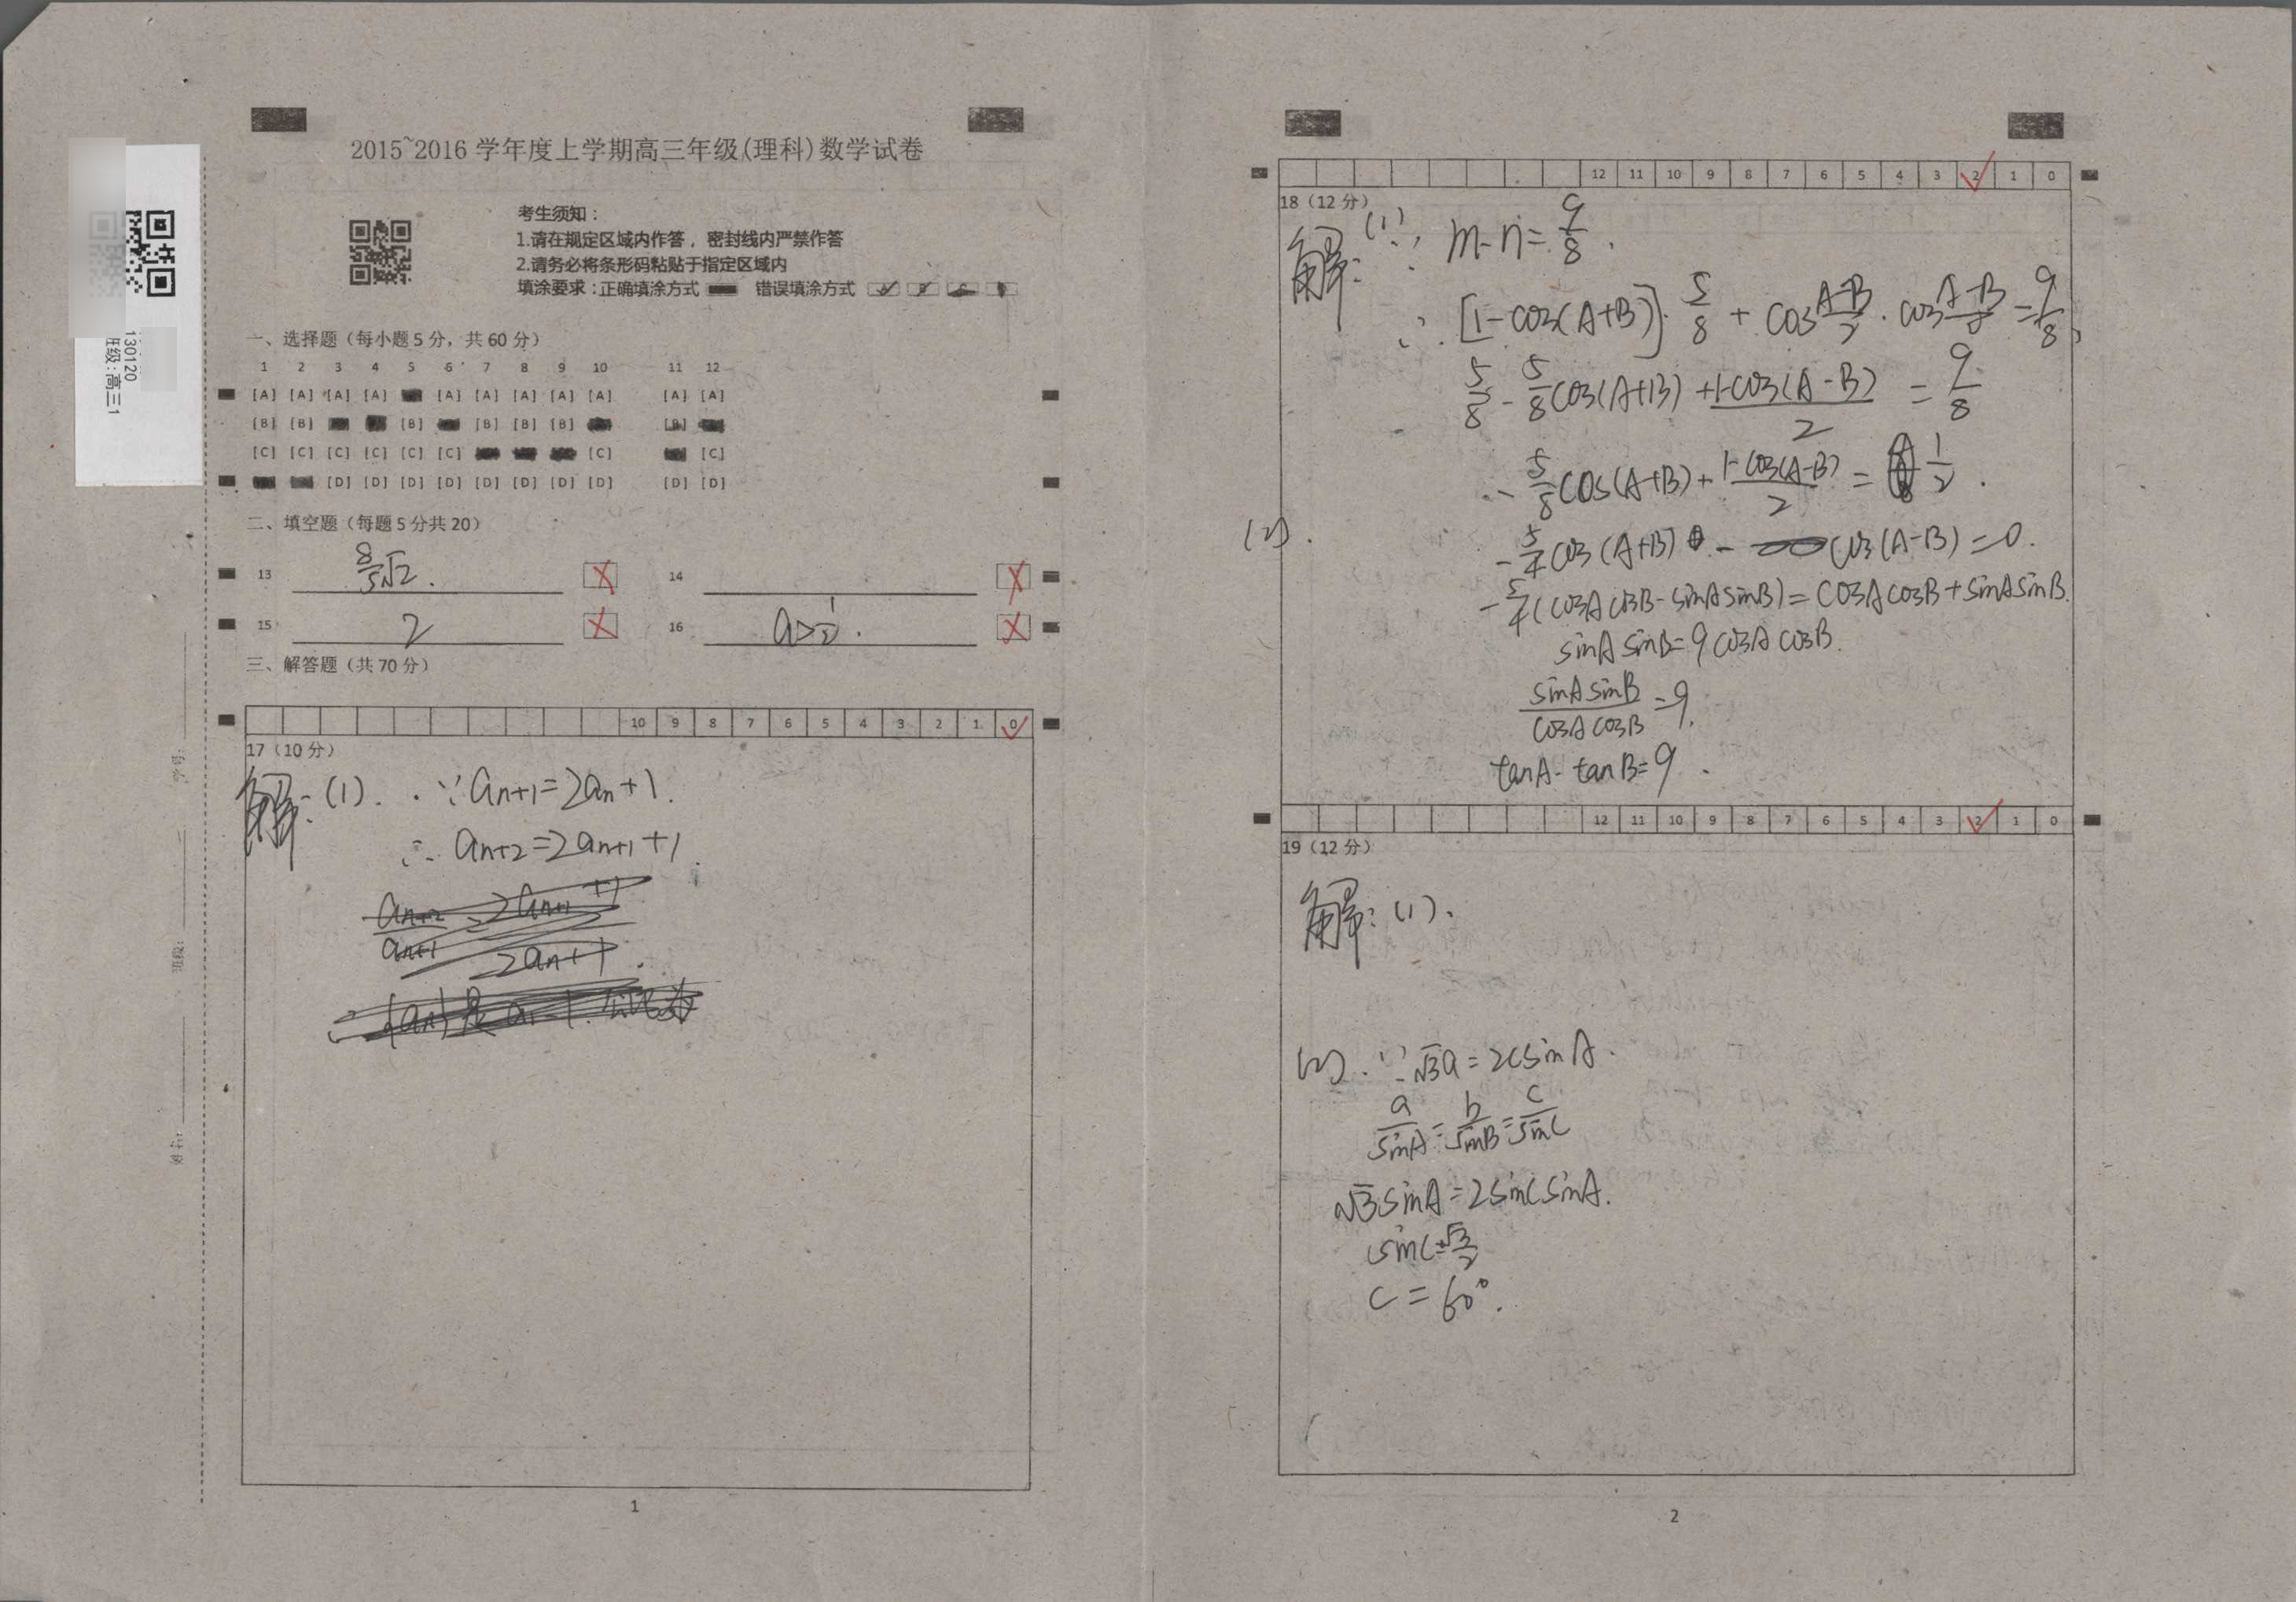 2015~2016 学年度上学期高三年级(理科)数学试卷
考生须知：
1.请在规定区域内作答，密封线内严禁作答
2.请务必将条形码粘贴于指定区域内
填涂要求：正确填涂方式 错误填涂方式
130120
班级:高三1
一、选择题（每小题 5 分，共 60 分）
1 2 3 4 5 6 7 8 9 10 11 12
[A] [A] [A] [A] [A] [A] [A] [A] [A] [A] [A]
[B] [B] [B] [B] [B] [B] [B]
[C] [C] [C] [C] [C] [C] [C] [C]
[D] [D] [D] [D] [D] [D] [D] [D] [D] [D]
二、填空题（每题 5 分共 20）
13 8/5√2. 14
15 2 16 a>1/2.
三、解答题（共 70 分）
10 9 8 7 6 5 4 3 2 1 0
17（10 分）
解:(1). ∵ an+1=2an+1.
∴ an+2=2an+1+1.
学号:
班级:
姓名:
1
12 11 10 9 8 7 6 5 4 3 2 1 0
18（12 分）
解: (1) ∵ m·n=9/8.
∴ [1-cos(A+B)]·5/8 + cos(A-B)/2 · cos(A-B)/2 = 9/8,
5/8 - 5/8cos(A+B) + (1-cos(A-B))/2 = 9/8
∴ -5/8cos(A+B) + (1-cos(A-B))/2 = 1/2.
(2).
-5/4cos(A+B) - cos(A-B)=0.
-5/4(cosAcosB-sinAsinB)=cosAcosB+sinAsinB.
sinAsinB=9cosAcosB.
sinAsinB/cosAcosB=9.
tanA·tanB=9.
12 11 10 9 8 7 6 5 4 3 2 1 0
19（12 分）
解: (1).
(2). ∵ √3a=2csinA.
a/sinA=b/sinB=c/sinC
√3sinA=2sinCsinA.
sinC=√3/2
C=60°.
2